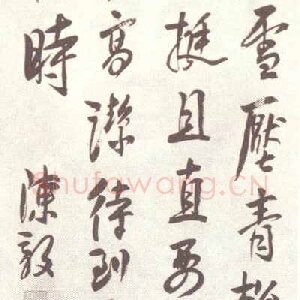 雪壓青松
挺且直要
高潔待到
時 陳毅
Shufawang.CN